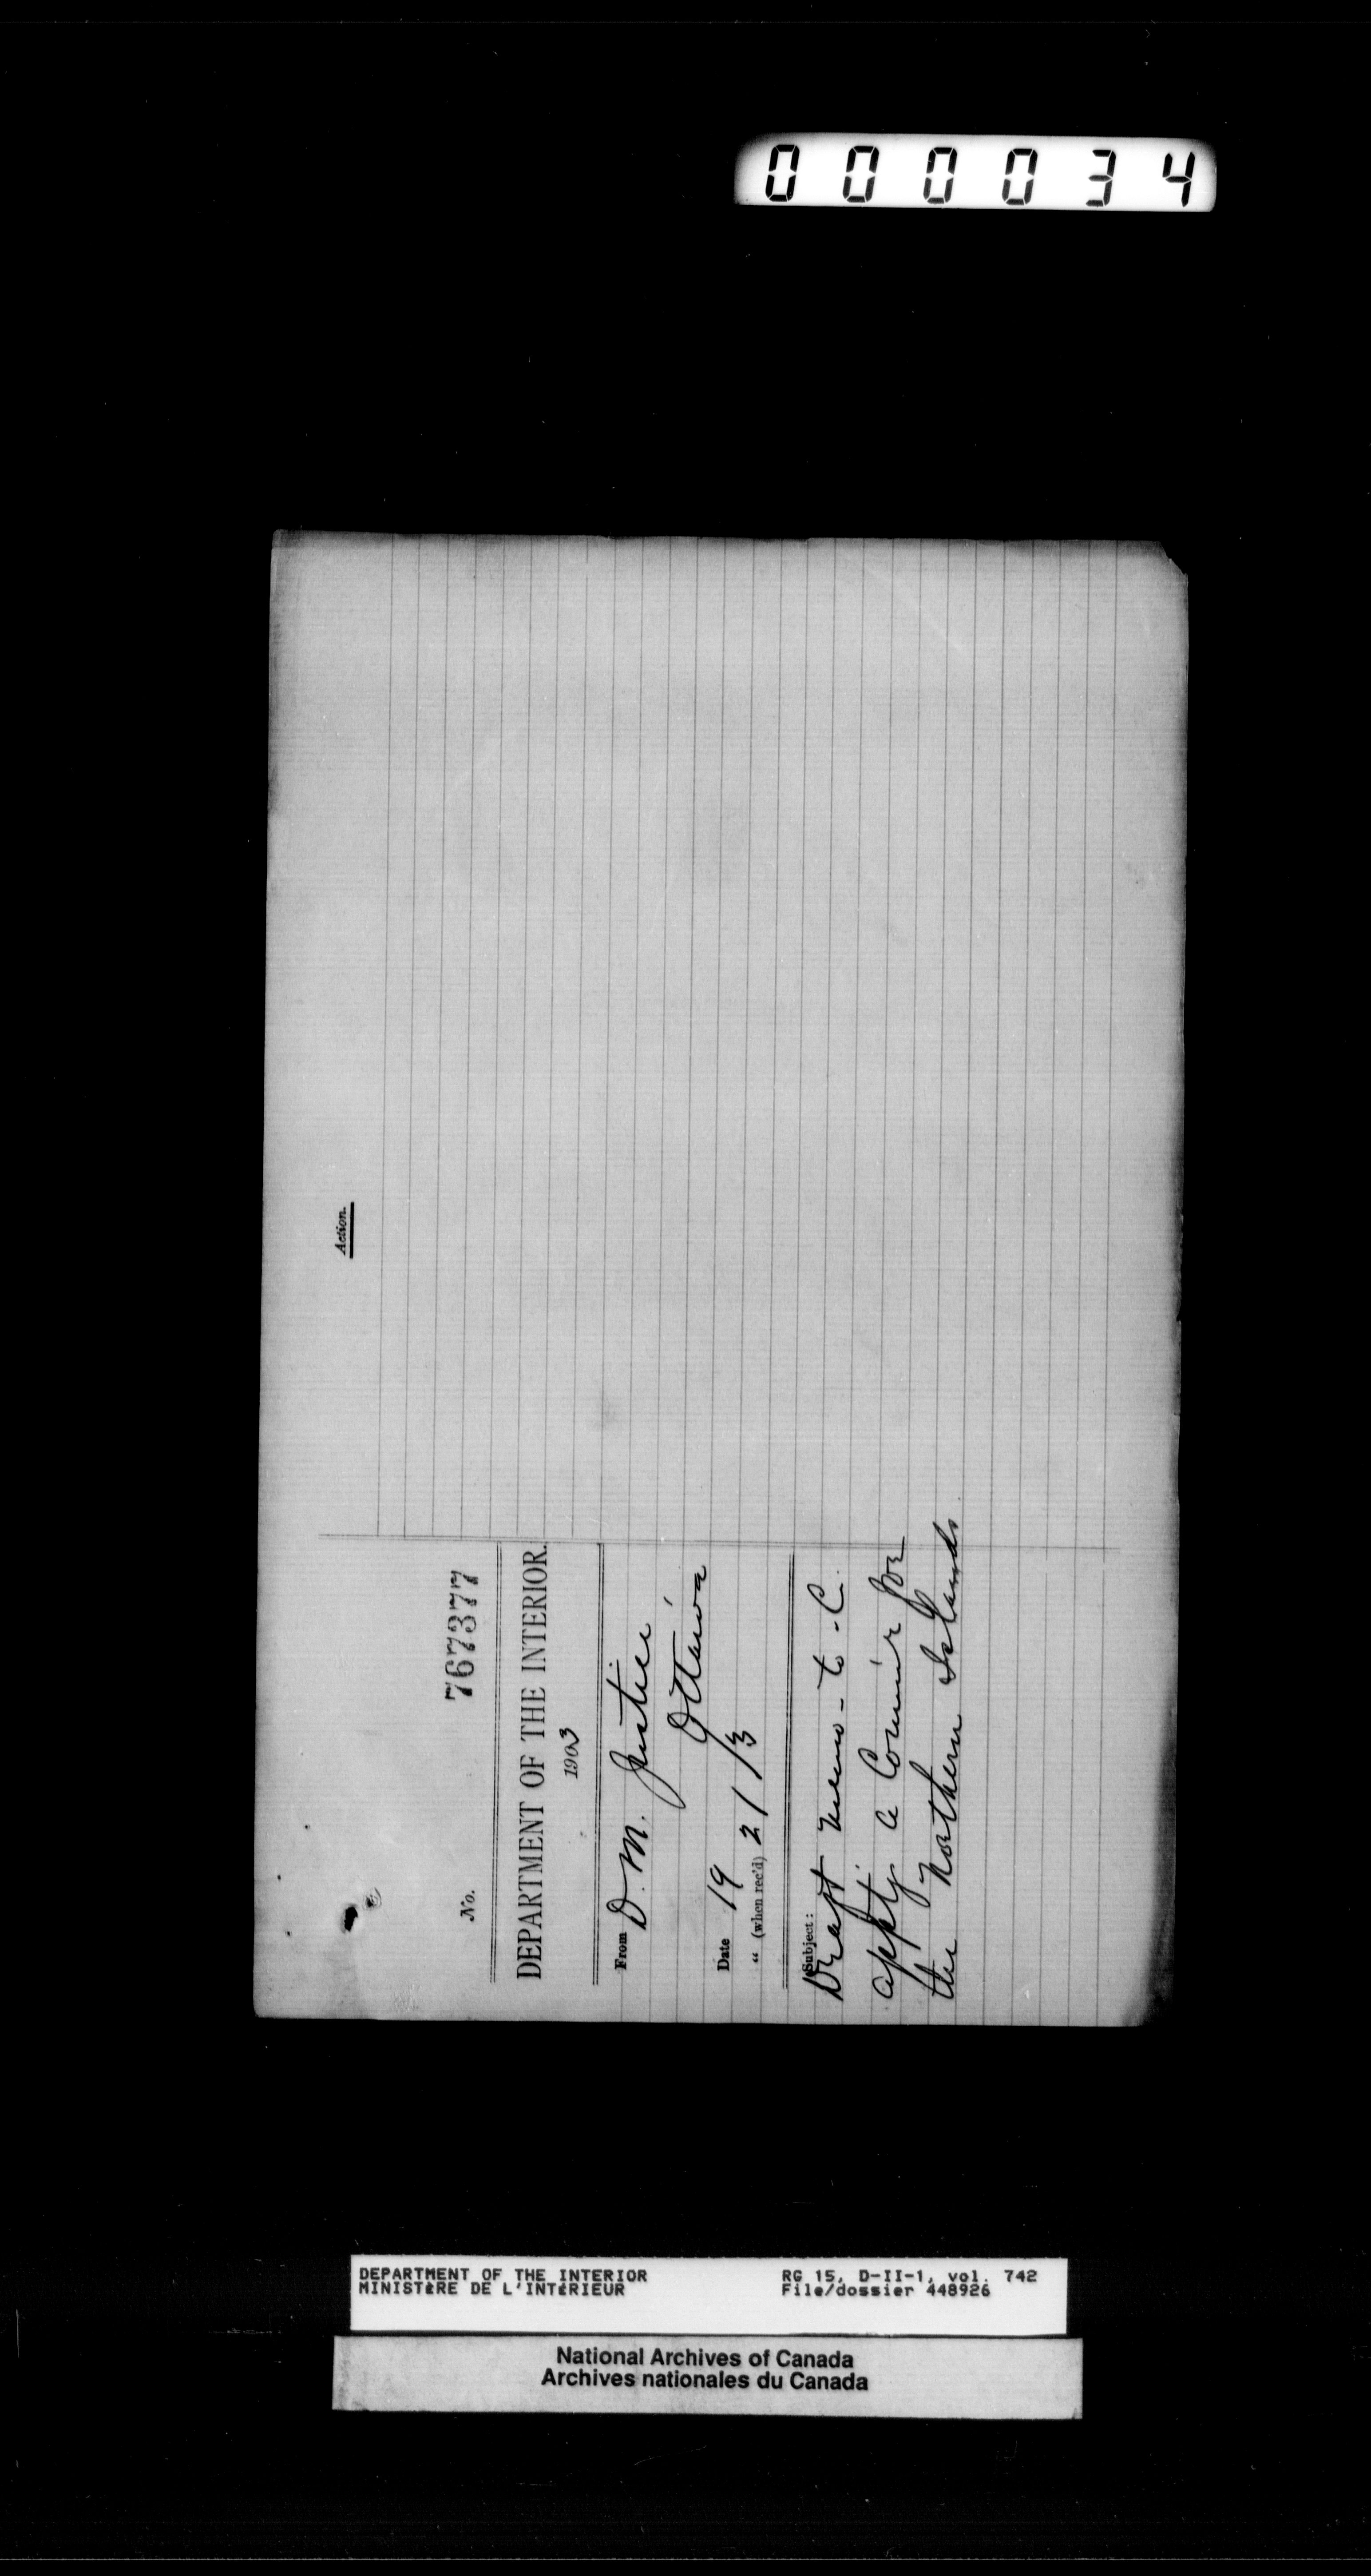 000034
Action.
No. 767377
DEPARTMENT OF THE INTERIOR.
1903
From D. M. Justice
Ottawa
Date 19
" (when rec'd) 21/3
Subject:
Draft memo - to - C.
appt'g a Commr for
the Northern Islands
DEPARTMENT OF THE INTERIOR
MINISTÈRE DE L'INTÉRIEUR
RG 15, D-II-1, vol. 742
File/dossier 448926
National Archives of Canada
Archives nationales du Canada